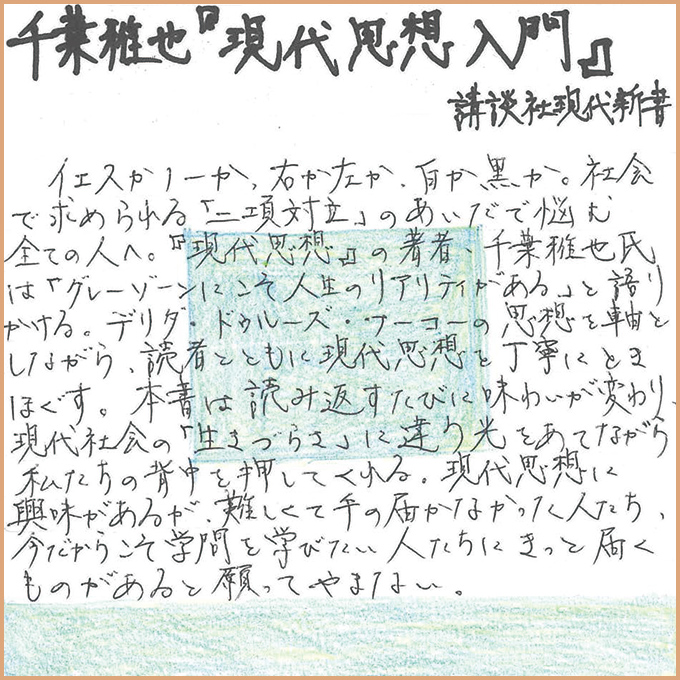 千葉雅也『現代思想入門』
講談社現代新書
イエスかノーか、右か左か、白か黒か。社会
で求められる「二項対立」のあいだで悩む
全ての人へ。『現代思想』の著者、千葉雅也氏
は「グレーゾーンにこそ人生のリアリティがある」と語り
かける。デリダ・ドゥルーズ・フーコーの思想を軸と
しながら、読者とともに現代思想を丁寧にとき
ほぐす。本書は読み返すたびに味わいが変わり、
現代社会の「生きづらさ」に違う光をあてながら
私たちの背中を押してくれる。現代思想に
興味があるが、難しくて手の届かなかった人たち、
今だからこそ学問を学びたい人たちにきっと届く
ものがあると願ってやまない。